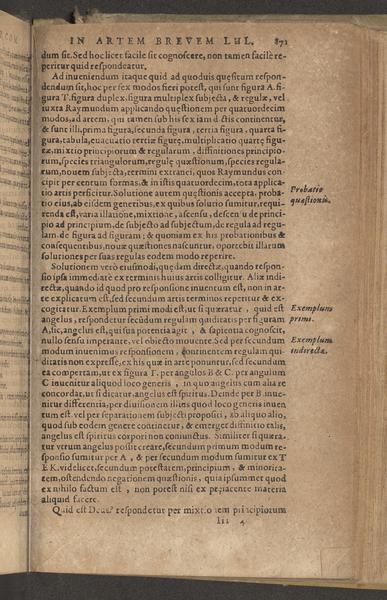 IN ARTEM BREVEM LUL. 871
dum sit. Sed hoc licet facile sit cognoscere, non tamen facile re-
peritur quid respondeatur.
Ad inveniendum itaque quid ad quoduis quęsitum respon-
dendum sit, hoc per sex modos fieri potest, qui sunt figura A. fi-
gura T. figura duplex, figura multiplex subjecta, & regulæ, vel
iuxta Raymundum applicando quęstionem per quatuordecim
modos, ad artem, qui tamen sub his sex iam dictis continentur,
& sunt illi, prima figura, secunda figura, tertia figura, quarta fi-
gura, tabula, euacuatio tertiæ figuræ, multiplicatio quartę figu-
ræ, mixtio principiorum & regularum, diffinitiones principio-
rum, species triangulorum, regulę quæstionum, species regula-
rum, nouem subjecta, termini extranei, quos Raymundus con-
cipit per centum formas, & in istis quatuordecim, tota applica-
tio artis perficitur. Solutione autem quęstionis accepta, proba-
tio eius, ab eisdem generibus, ex quibus solutio sumitur, requi-
renda est, varia illatione, mixtione, ascensu, descensu de princi-
pio ad principium, de subjecto ad subjectum, de regula ad regu-
lam, de figura ad figuram; & quoniam ex his probationibus &
consequentibus, nouæ quæstiones nascuntur, oportebit illarum
solutiones per suas regulas eodem modo reperire.
Probatio
quæstionis.
Solutionem vero eiusmodi, quędam directæ, quando respon-
sio ipsa immediate ex terminis huius artis colligitur. Aliæ indi-
rectæ, quando id quod pro responsione inuentum est, non in ar-
te explicatum est, sed secundum artis terminos reperitur & ex-
cogitatur. Exemplum primi modi est, ut si quæratur, quid est
angelus, respondetur secūdum regulam quiditatis per figuram
A, sic, angelus est, qui sua potentia agit, & sapientia cognoscit,
nullo sensu imperante, vel obiecto mouente. Sed per secundum
modum inuenimus responsionem, continentem regulam qui-
ditatis non expresse, ex his quæ in arte ponuntur, sed secundum
ea compertam, ut ex figura T. per angulos B & C. per angulum
C inuenitur aliquod loco generis, in quo angelus cum alia re
concordat, ut si dicatur, angelus est spiritus. Deinde per B inue-
nitur differentia, per diuisionem illius quod loco generis inuen
tum est, vel per separationem subjecti propositi, ab aliquo alio,
quod sub eodem genere continetur, & emerget diffinitio talis,
angelus est spiritus corpori non coniunctus. Similiter si quæra-
tur utrum angelus possit creare, secundum primum modum re-
sponsio sumitur per A, & per secundum modum sumitur ex T
E K. videlicet, secundum potestatem, principium, & minorita-
tem, ostendendo negationem quęstionis, quia ipsummet quod
ex nihilo factum est, non potest nisi ex pręiacente materia
aliquid facere.
Exemplum
primi.
Exemplum
indirectæ.
Quid est Deus? respondetur per mixtionem principiorum
Iii 4